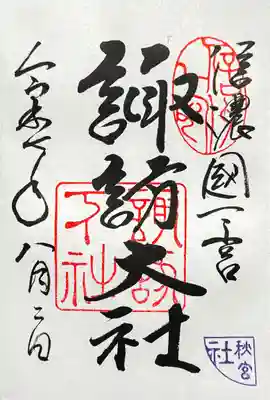 信濃國一宮
諏訪大社
令和七年八月二日
諏訪
下社
秋宮
社